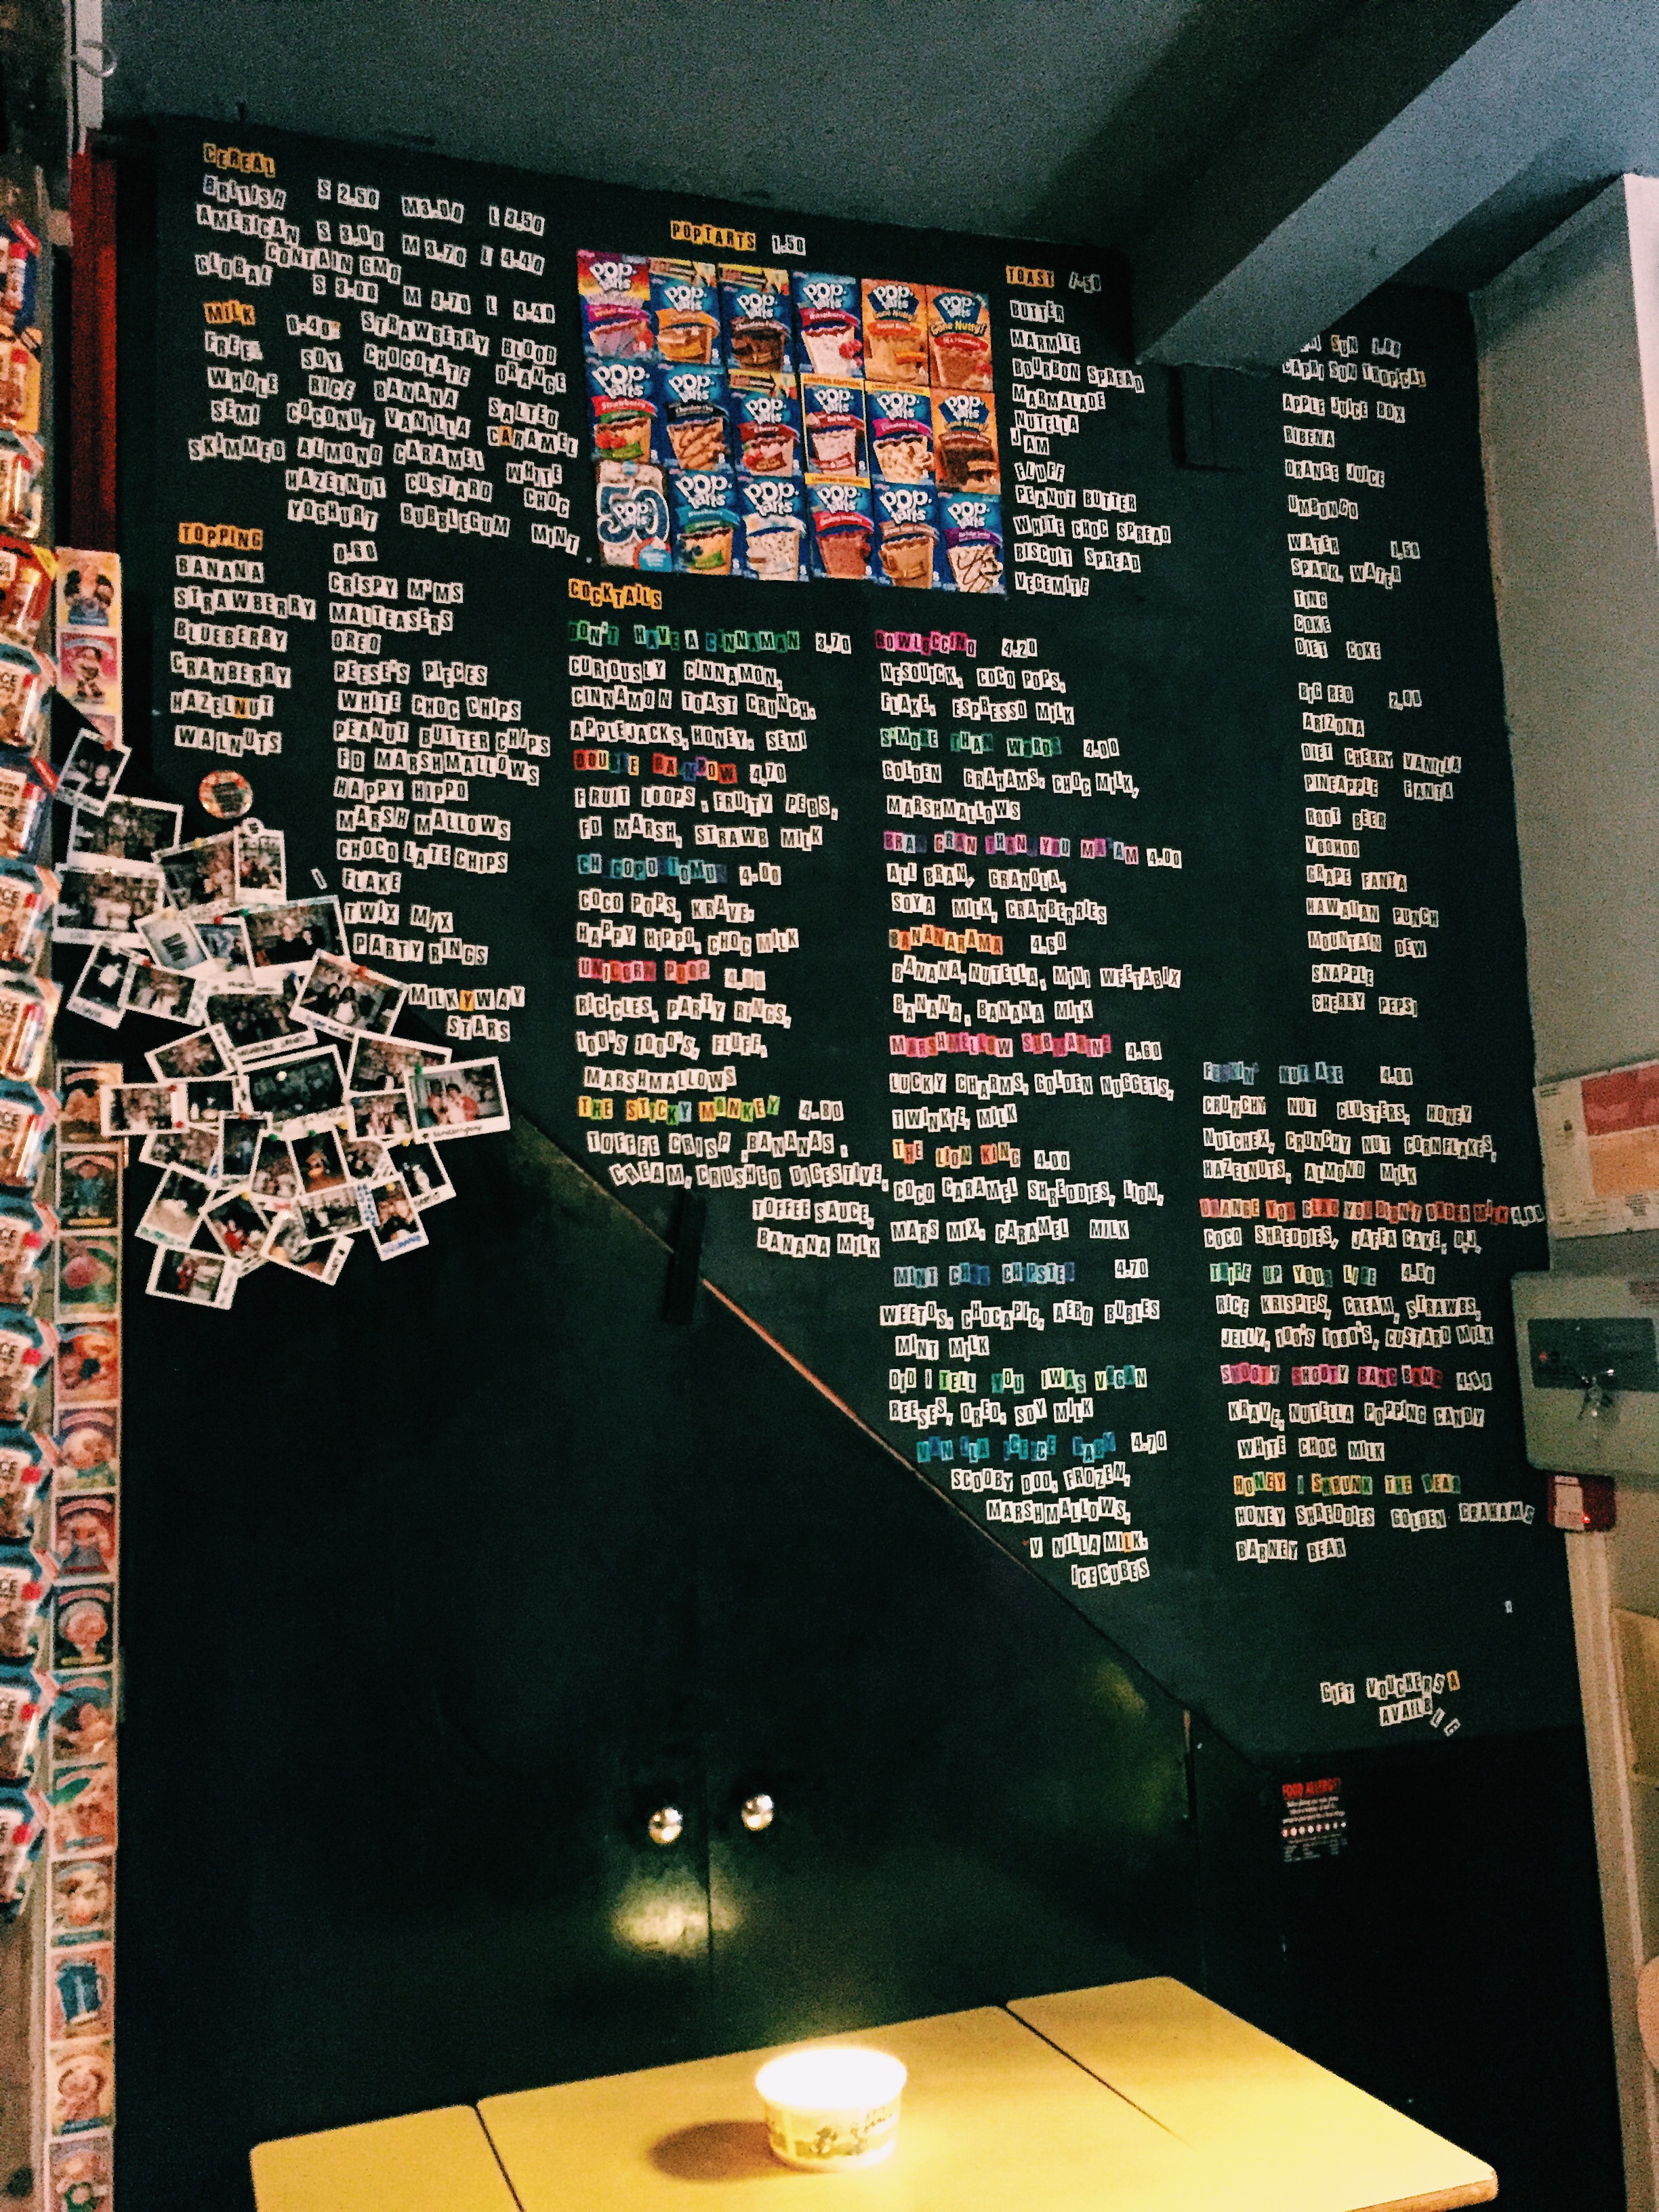 CEREAL
BRITISH S 2.50 M 3.00 L 3.50
AMERICAN S 3.00 M 3.70 L 4.40
CONTAIN GMO
GLOBAL S 3.00 M 3.70 L 4.40
MILK 0.40
FREE
WHOLE
SEMI
SKIMMED
SOY
RICE
COCONUT
ALMOND
HAZELNUT
YOGHURT
STRAWBERRY
CHOCOLATE
BANANA
VANILLA
CARAMEL
CUSTARD
BUBBLEGUM
BLOOD
ORANGE
SALTED
CARAMEL
WHITE
CHOC
MINT
TOPPING 0.60
BANANA
STRAWBERRY
BLUEBERRY
CRANBERRY
HAZELNUT
WALNUTS
CRISPY M'MS
MALTEASERS
OREO
REESE'S PIECES
WHITE CHOC CHIPS
PEANUT BUTTER CHIPS
FD MARSHMALLOWS
HAPPY HIPPO
MARSH MALLOWS
CHOCOLATE CHIPS
FLAKE
TWIX MIX
PARTY RINGS
MILKYWAY
STARS
POPTARTS 1.50
COCKTAILS
DON'T HAVE A CINNAMAN 3.70
CURIOUSLY CINNAMON,
CINNAMON TOAST CRUNCH,
APPLEJACKS, HONEY, SEMI
DOUBLE RAINBOW 4.70
FRUIT LOOPS, FRUITY PEBS,
FD MARSH, STRAWB MILK
CHOCOPOTOMUS 4.00
COCO POPS, KRAVE,
HAPPY HIPPO, CHOC MILK
UNICORN POOP
RICICLES, PARTY RINGS,
100'S 1000'S, FLUFF,
MARSHMALLOWS
THE STICKY MONKEY 4.80
TOFFEE CRISP, BANANAS,
CREAM, CRUSHED DIGESTIVE,
TOFFEE SAUCE,
BANANA MILK
BOWLOCCINO 4.20
NESQUICK, COCO POPS,
FLAKE, ESPRESSO MILK
S'MORE THAN WORDS 4.00
GOLDEN GRAHAMS, CHOC MILK,
MARSHMALLOWS
BRAN GRAN THAN YOU MA'AM 4.00
ALL BRAN, GRANOLA,
SOYA MILK, CRANBERRIES
BANANARAMA 4.60
BANANA, NUTELLA, MINI WEETABIX
BANANA, BANANA MILK
MARSHMELLOW SUBMARINE 4.60
LUCKY CHARMS, GOLDEN NUGGETS,
TWINKIE, MILK
THE LION KING 4.00
COCO CARAMEL SHREDDIES, LION,
MARS MIX, CARAMEL MILK
MINT CHOC CHIPSTER 4.70
WEETOS, CHOCAPIC, AERO BUBLES
MINT MILK
DID I TELL YOU I WAS VEGAN
REESES, OREO, SOY MILK
VANILLA ICE ICE BABY 4.70
SCOOBY DOO, FROZEN,
MARSHMALLOWS,
V NILLA MILK,
ICE CUBES
TOAST
BUTTER
MARMITE
BOURBON SPREAD
MARMALADE
NUTELLA
JAM
FLUFF
PEANUT BUTTER
WHITE CHOC SPREAD
BISCUIT SPREAD
VEGEMITE
SUN
CAPRI SUN TROPICAL
APPLE JUICE BOX
RIBENA
ORANGE JUICE
UMBONGO
WATER
SPARK. WATER
TING
COKE
DIET COKE
BIG RED 2.00
ARIZONA
DIET CHERRY VANILLA
PINEAPPLE FANTA
ROOT BEER
YOOHOO
GRAPE FANTA
HAWAIIAN PUNCH
MOUNTAIN DEW
SNAPPLE
CHERRY PEPSI
FEKKIN' NUT CASE 4.00
CRUNCHY NUT CLUSTERS, HONEY
NUTCHEX, CRUNCHY NUT CORNFLAKES,
HAZELNUTS, ALMOND MILK
ORANGE YOU GLAD YOU DIDN'T ORDER MILK 4.00
COCO SHREDDIES, JAFFA CAKE, OJ,
TRIFE UP YOUR LIFE 4.60
RICE KRISPIES, CREAM, STRAWBS,
JELLY, 100'S 1000'S, CUSTARD MILK
SHOOTY SHOOTY BANG BANG 4.60
KRAVE, NUTELLA POPPING CANDY
WHITE CHOC MILK
HONEY I SHRUNK THE BEAR
HONEY SHREDDIES GOLDEN GRAHAMS
BARNEY BEAR
GIFT VOUCHERS A
AVAILBLE
FOOD ALLERGY